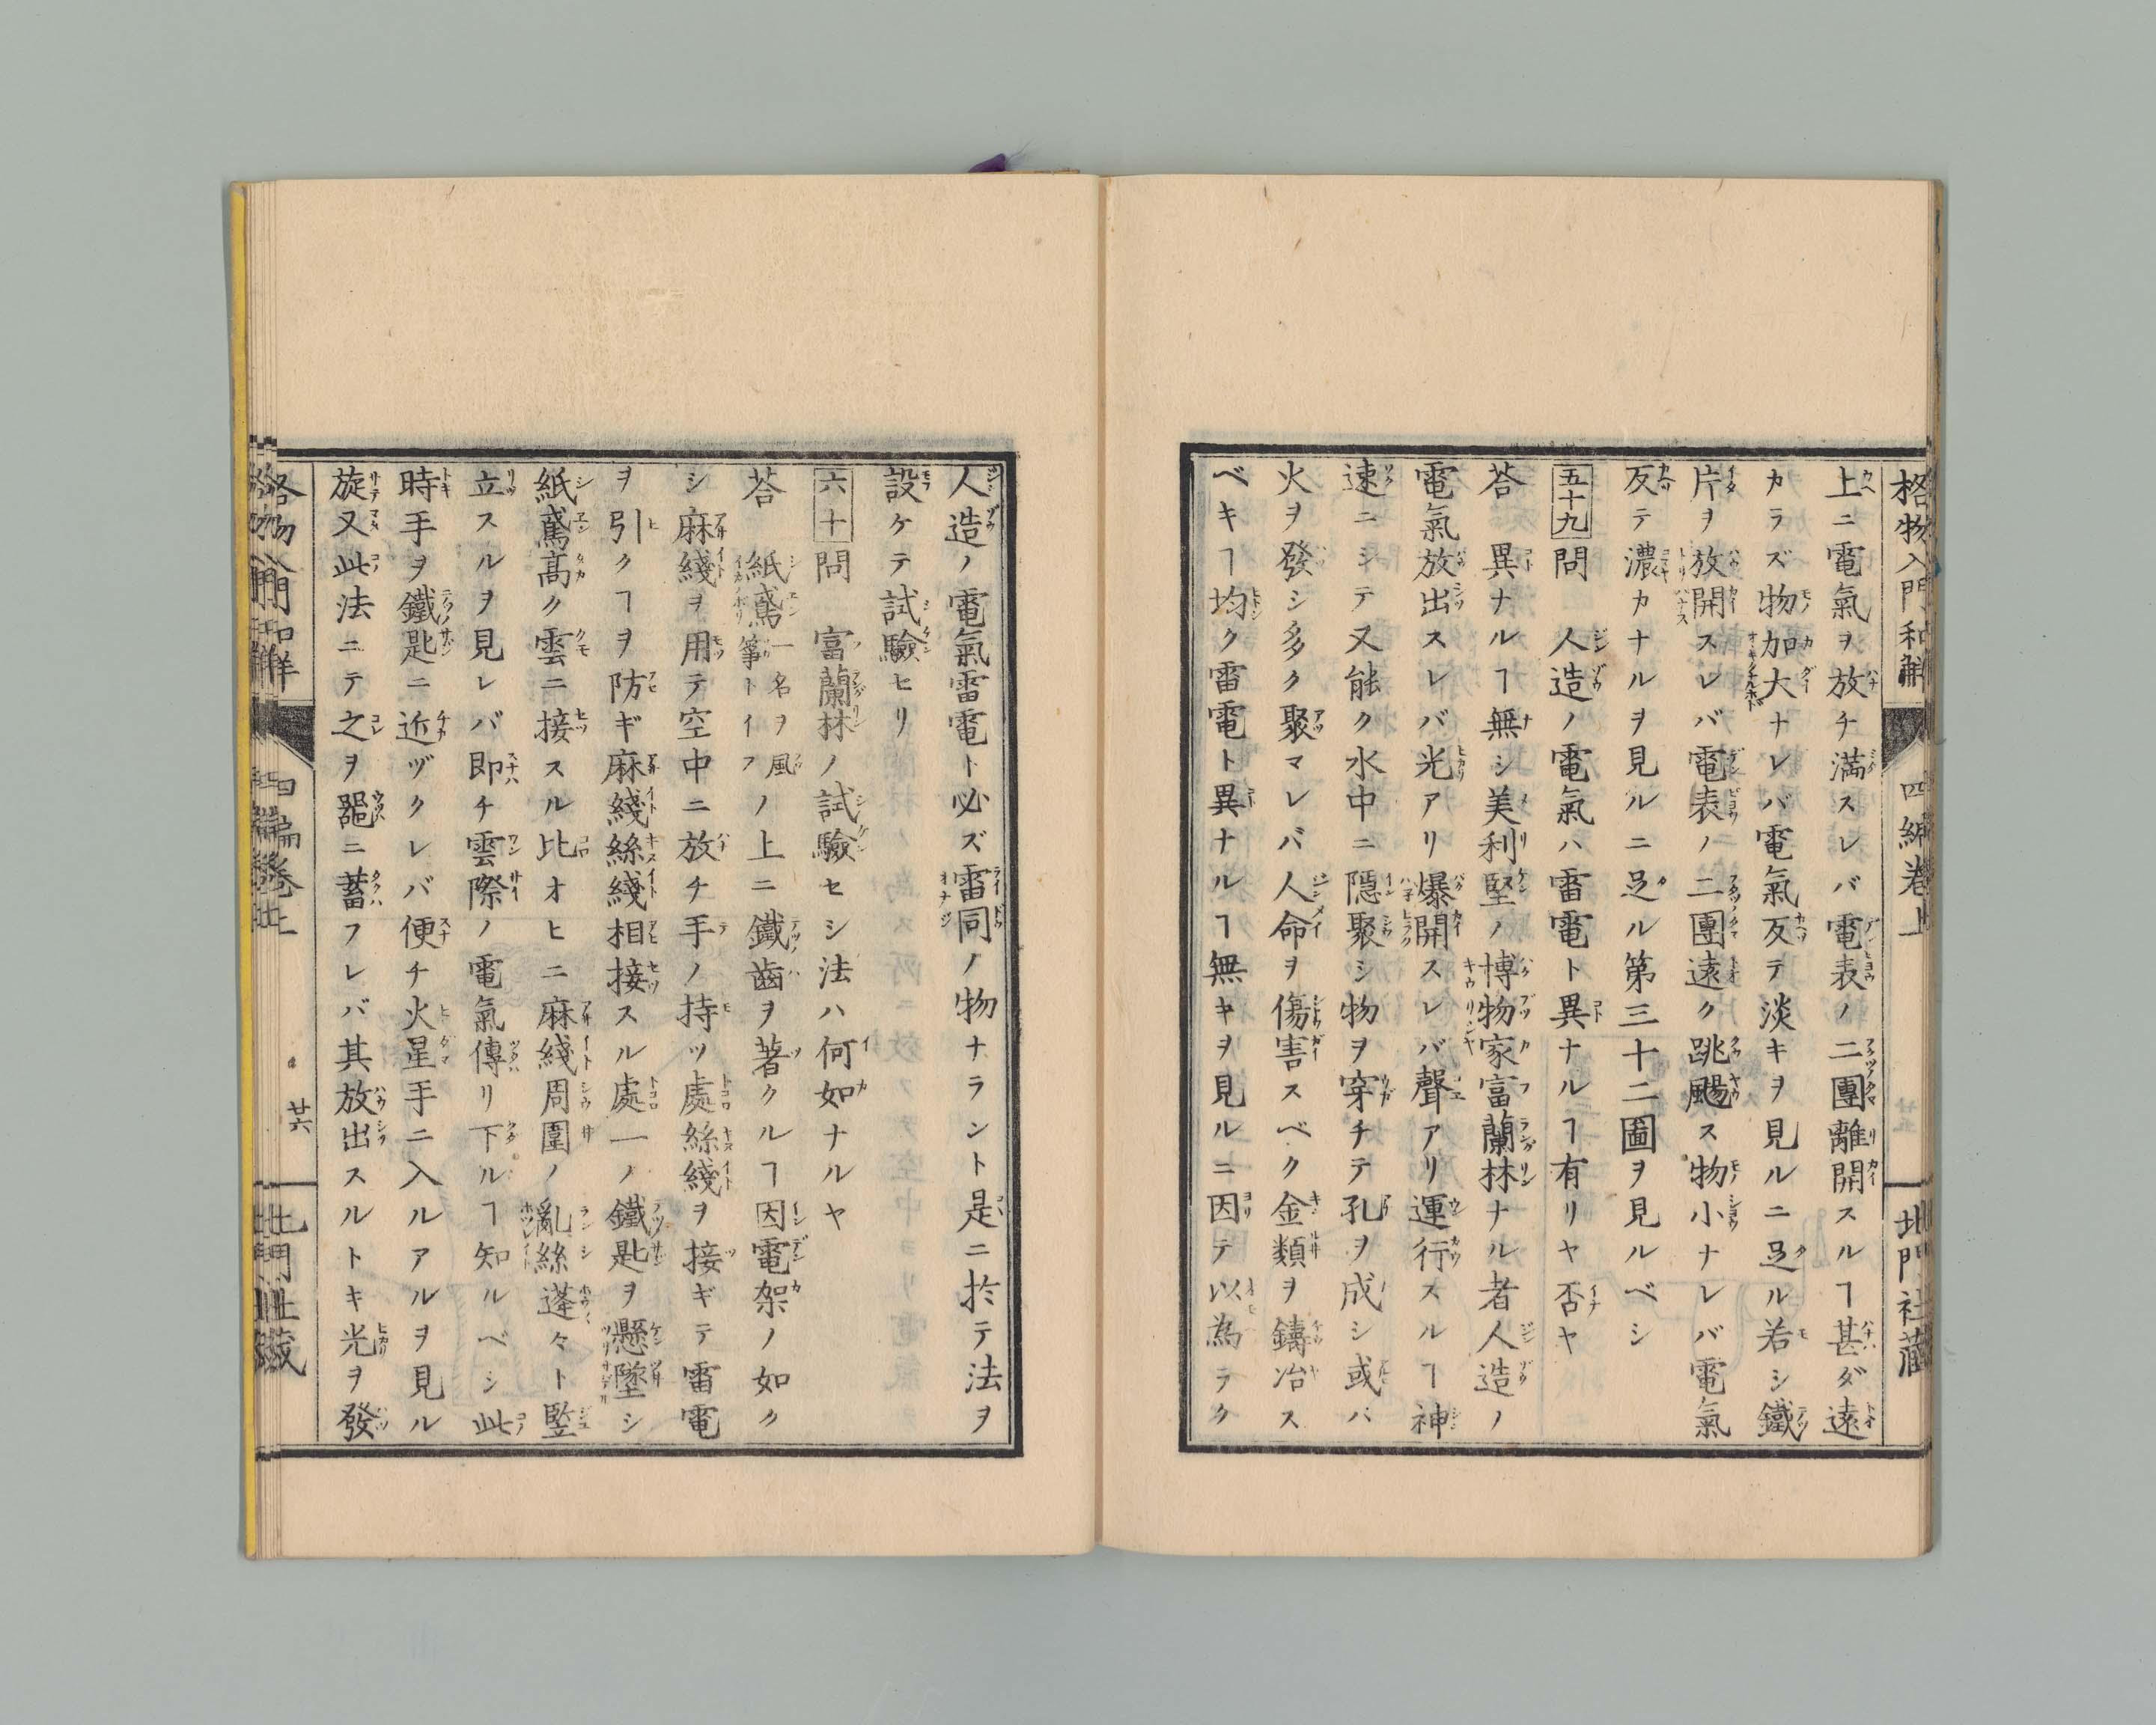 格物入門和解 四編卷上 北門社蔵
上ニ電氣ヲ放チ満スレバ電表ノ二團離開スルヿ甚ダ遠
カラズ物加大ナレバ電氣反テ淡キヲ見ルニ足ル若シ鐵
片ヲ放開スレバ電表ノ二團遠ク跳颺ス物小ナレバ電氣
反テ濃カナルヲ見ルニ足ル第三十二圖ヲ見ルベシ
五十九 問 人造ノ電氣ハ雷電ト異ナルヿ有リヤ否ヤ
荅 異ナルヿ無シ美利堅ノ博物家富蘭林ナル者人造ノ
電氣放出スレバ光アリ爆開スレバ聲アリ運行スルヿ神
速ニシテ又能ク水中ニ隠聚シ物ヲ穿チテ孔ヲ成シ或ハ
火ヲ發シ多ク聚マレバ人命ヲ傷害スベク金類ヲ鑄冶ス
ベキヿ均ク雷電ト異ナルヿ無キヲ見ルニ因テ以為ラク
人造ノ電氣雷電ト必ズ雷同ノ物ナラント是ニ於テ法ヲ
設ケテ試驗セリ
六十 問 富蘭林ノ試驗セシ法ハ何如ナルヤ
荅 紙鳶一名ヲ風箏トイフノ上ニ鐵齒ヲ著クルヿ因電架ノ如ク
シ麻綫ヲ用テ空中ニ放チ手ノ持ツ處絲綫ヲ接ギテ雷電
ヲ引クヿヲ防ギ麻綫絲綫相接スル處一ノ鐵匙ヲ懸墜シ
紙鳶高ク雲ニ接スル比オヒニ麻綫周圍ノ亂絲蓬々ト竪
立スルヲ見レバ即チ雲際ノ電氣傳リ下ルヿ知ルベシ此
時手ヲ鐵匙ニ近ヅクレバ便チ火星手ニ入ルアルヲ見ル
旋又此法ニテ之ヲ噐ニ蓄フレバ其放出スルトキ光ヲ發
格物入門和解 四編卷上 廿六 北門社蔵